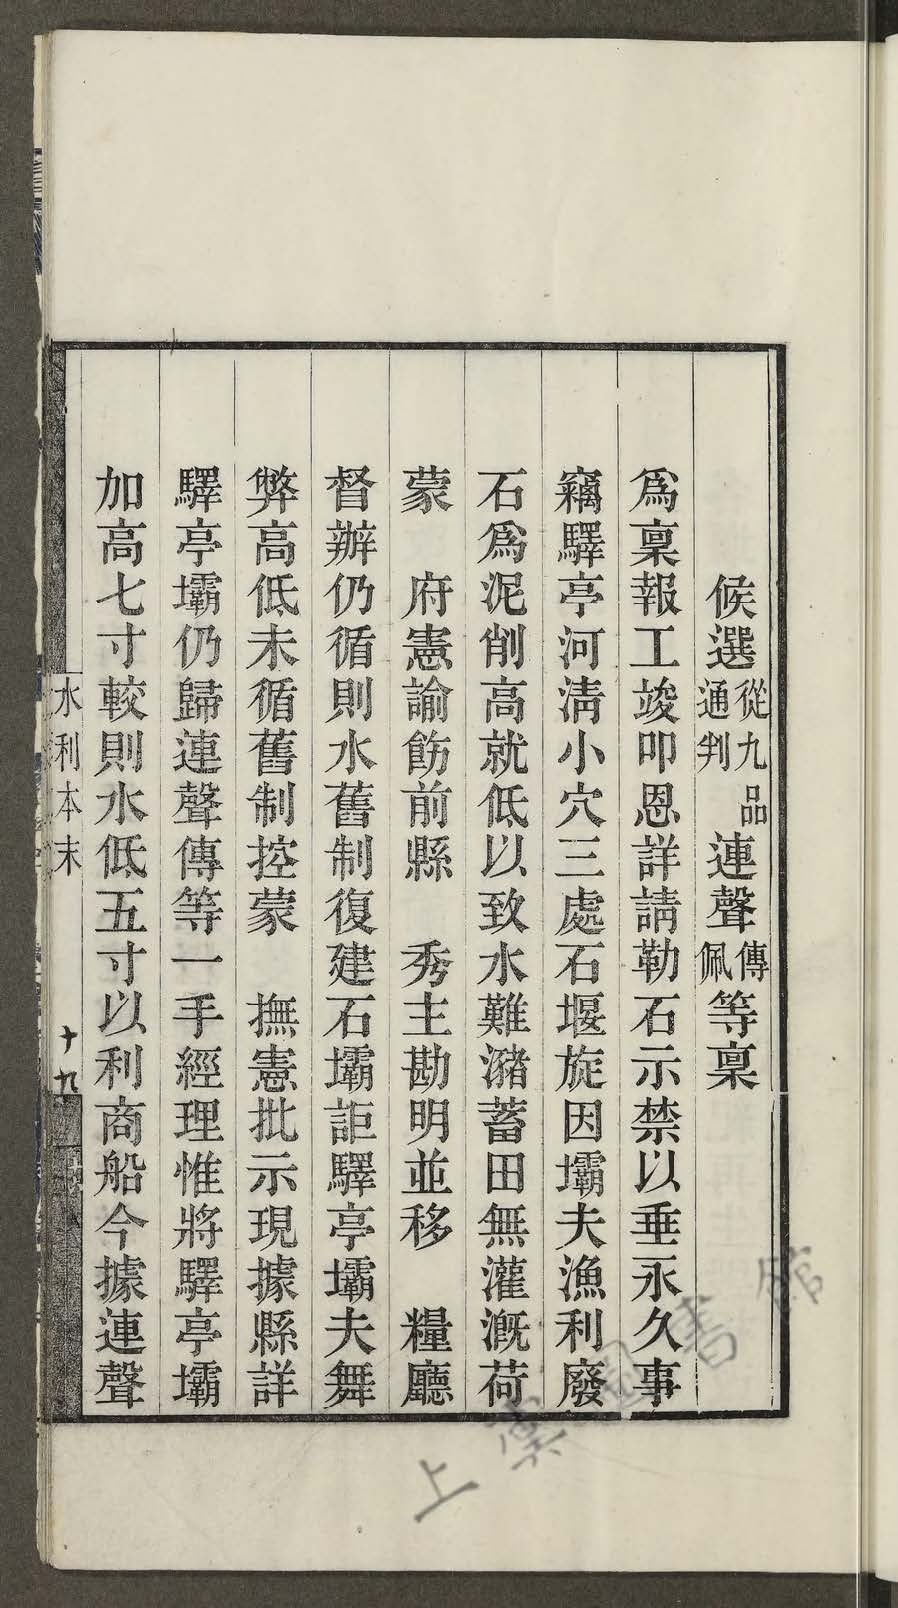 候選從九品通判連聲傳佩等稟
爲稟報工竣叩恩詳請勒石示禁以垂永久事
竊驛亭河淸小穴三處石堰旋因壩夫漁利廢
石爲泥削高就低以致水難瀦蓄田無灌漑荷
蒙　府憲諭飭前縣　秀主勘明並移　糧廳
督辦仍循則水舊制復建石壩詎驛亭壩夫舞
弊高低未循舊制控蒙　撫憲批示現據縣詳
驛亭壩仍歸連聲傳等一手經理惟將驛亭壩
加高七寸較則水低五寸以利商船今據連聲
水利本末
十九
上虞圖書館